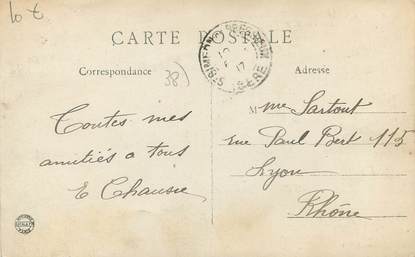 10 €
CARTE POSTALE
Correspondance
38)
Adresse
Toutes mes
amitiés a tous
E Chausse
Mme Sartout
rue Paul Bert 115
Lyon
Rhône
ISERE